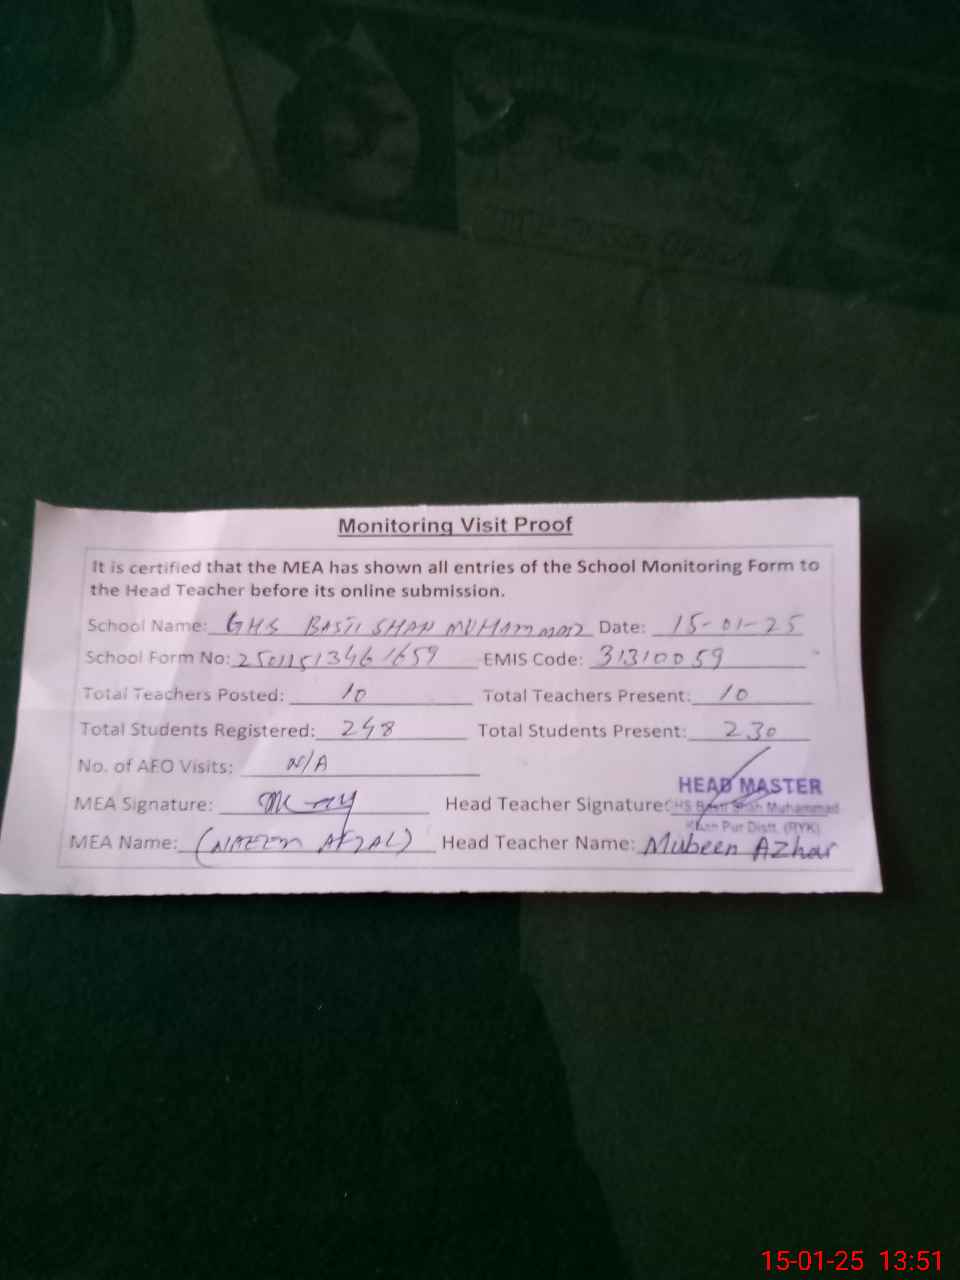 Monitoring Visit Proof
It is certified that the MEA has shown all entries of the School Monitoring Form to
the Head Teacher before its online submission.
School Name: GHS BASTI SHAH MUHAMMAD Date: 15-01-25
School Form No: 25011513461659 EMIS Code: 31310059
Total Teachers Posted: 10 Total Teachers Present: 10
Total Students Registered: 248 Total Students Present: 230
No. of AEO Visits: N/A
HEAD MASTER
MEA Signature: Head Teacher Signature: GHS Basti Shah Muhammad
Khan Pur Distt. (RYK)
MEA Name: (NAEEM AFZAL) Head Teacher Name: Mubeen Azhar
15-01-25 13:51